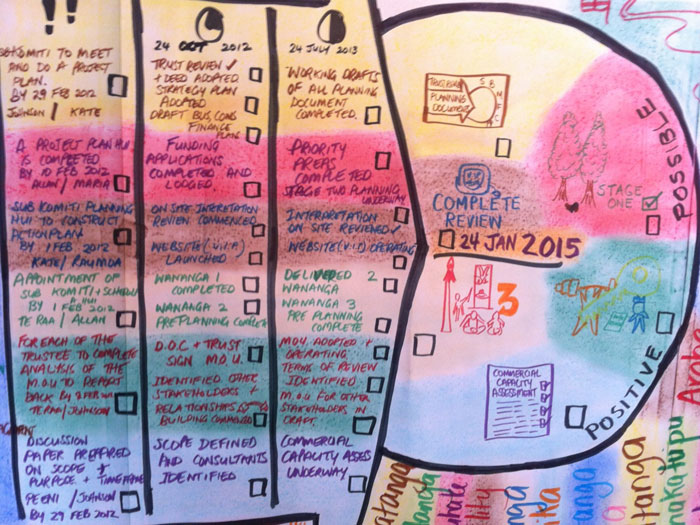 !!
SUB KOMITI TO MEET
AND DO A PROJECT
PLAN.
BY 29 FEB 2012
JOHNSON / KATE
A PROJECT PLAN HUI
IS COMPLETED
BY 10 FEB 2012
ALLAN / MARIA
SUB KOMITI PLANNING
HUI TO CONSTRUCT
ACTION PLAN
BY 1 FEB 2012
KATE / RAUMOA
APPOINTMENT OF
SUB KOMITI + SCHEDULE
A HUI
BY 1 FEB 2012
TE RAA / ALLAN
FOR EACH OF THE
TRUSTEE TO COMPLETE
ANALYSIS OF THE
M.O.U TO REPORT
BACK BY 2 FEB
TE RAA / JOHNSON
DISCUSSION
PAPER PREPARED
ON SCOPE +
PURPOSE + TIMEFRAME
PEENI / JOHNSON
BY 29 FEB 2012
24 OCT 2012
TRUST REVIEW ✓
+ DEED ADOPTED
STRATEGY PLAN
ADOPTED
DRAFT BUS, COMS
FINANCE
PLANS
FUNDING
APPLICATIONS
COMPLETED AND
LODGED
ON SITE INTERETATION
REVIEW COMMENCED
WEBSITE (V.1.1)
LAUNCHED
WANANGA 1
COMPLETED
WANANGA 2
PREPLANNING COMPLETE
D.O.C + TRUST
SIGN M.O.U.
IDENTIFIED OTHER
STAKEHOLDERS +
RELATIONSHIPS
BUILDING COMMENCED
SCOPE DEFINED
AND CONSULTANTS
IDENTIFIED
24 JULY 2013
WORKING DRAFTS
OF ALL PLANNING
DOCUMENT
COMPLETED.
PRIORITY
AREAS
COMPLETED
STAGE TWO PLANNING
UNDERWAY
INTERPRETATION
ON SITE REVIEWED ✓
WEBSITE OPERATING
DELIVERED 2
WANANGA
WANANGA 3
PRE PLANNING
COMPLETE
MOU ADOPTED +
OPERATING
TERMS OF REVIEW
IDENTIFIED
M.O.U FOR OTHER
STAKEHOLDERS IN
DRAFT
COMMERCIAL
CAPACITY ASSESS
UNDERWAY
PLANNING
DOCUMENT
STAGE
ONE
POSSIBLE
COMPLETE
REVIEW
24 JAN 2015
3
COMMERCIAL
CAPACITY
ASSESSMENT
POSITIVE